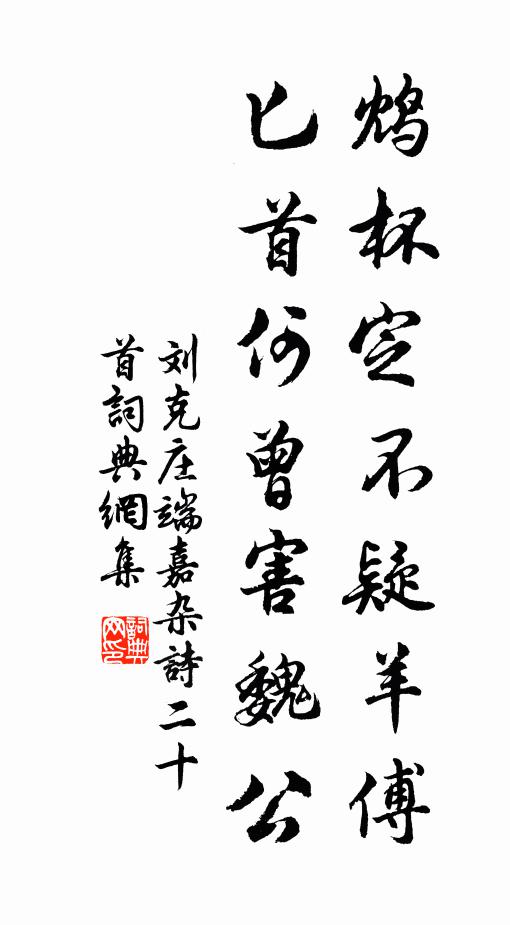 鸩杯定不疑羊傅
匕首何曾害魏公
刘克庄端嘉杂詩二十
首詞典網集
詞典网印